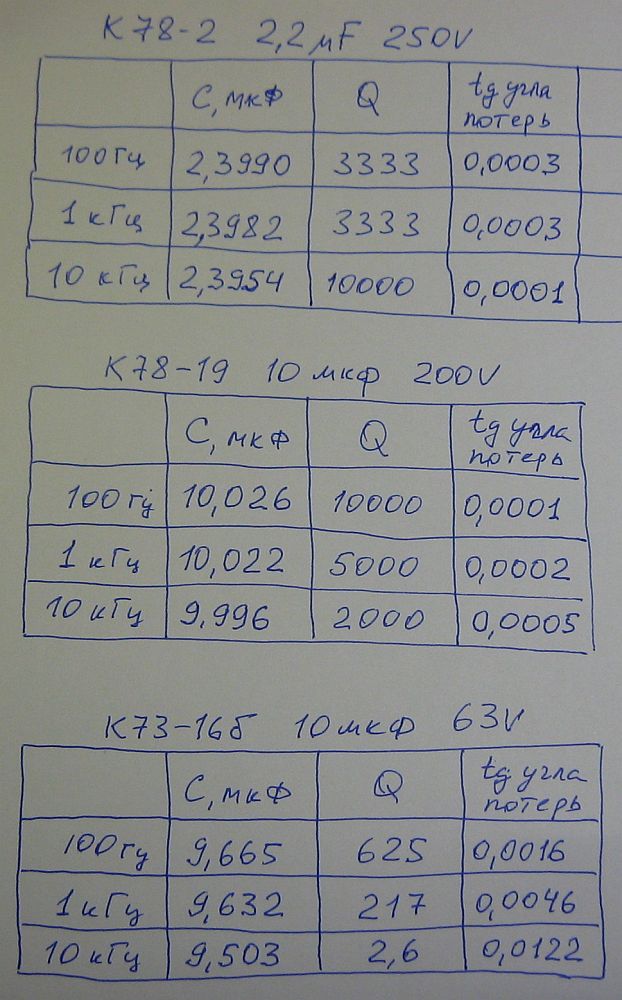 К78-2 2,2 μF 250V
С, мкФ Q tg угла
потерь
100 Гц 2,3990 3333 0,0003
1 кГц 2,3982 3333 0,0003
10 кГц 2,3954 10000 0,0001
К78-19 10 мкФ 200V
С, мкФ Q tg угла
потерь
100 гц 10,026 10000 0,0001
1 кГц 10,022 5000 0,0002
10 кГц 9,996 2000 0,0005
К73-16б 10 мкФ 63V
С, мкФ Q tg угла
потерь
100 гц 9,665 625 0,0016
1 кГц 9,632 217 0,0046
10 кГц 9,503 2,6 0,0122